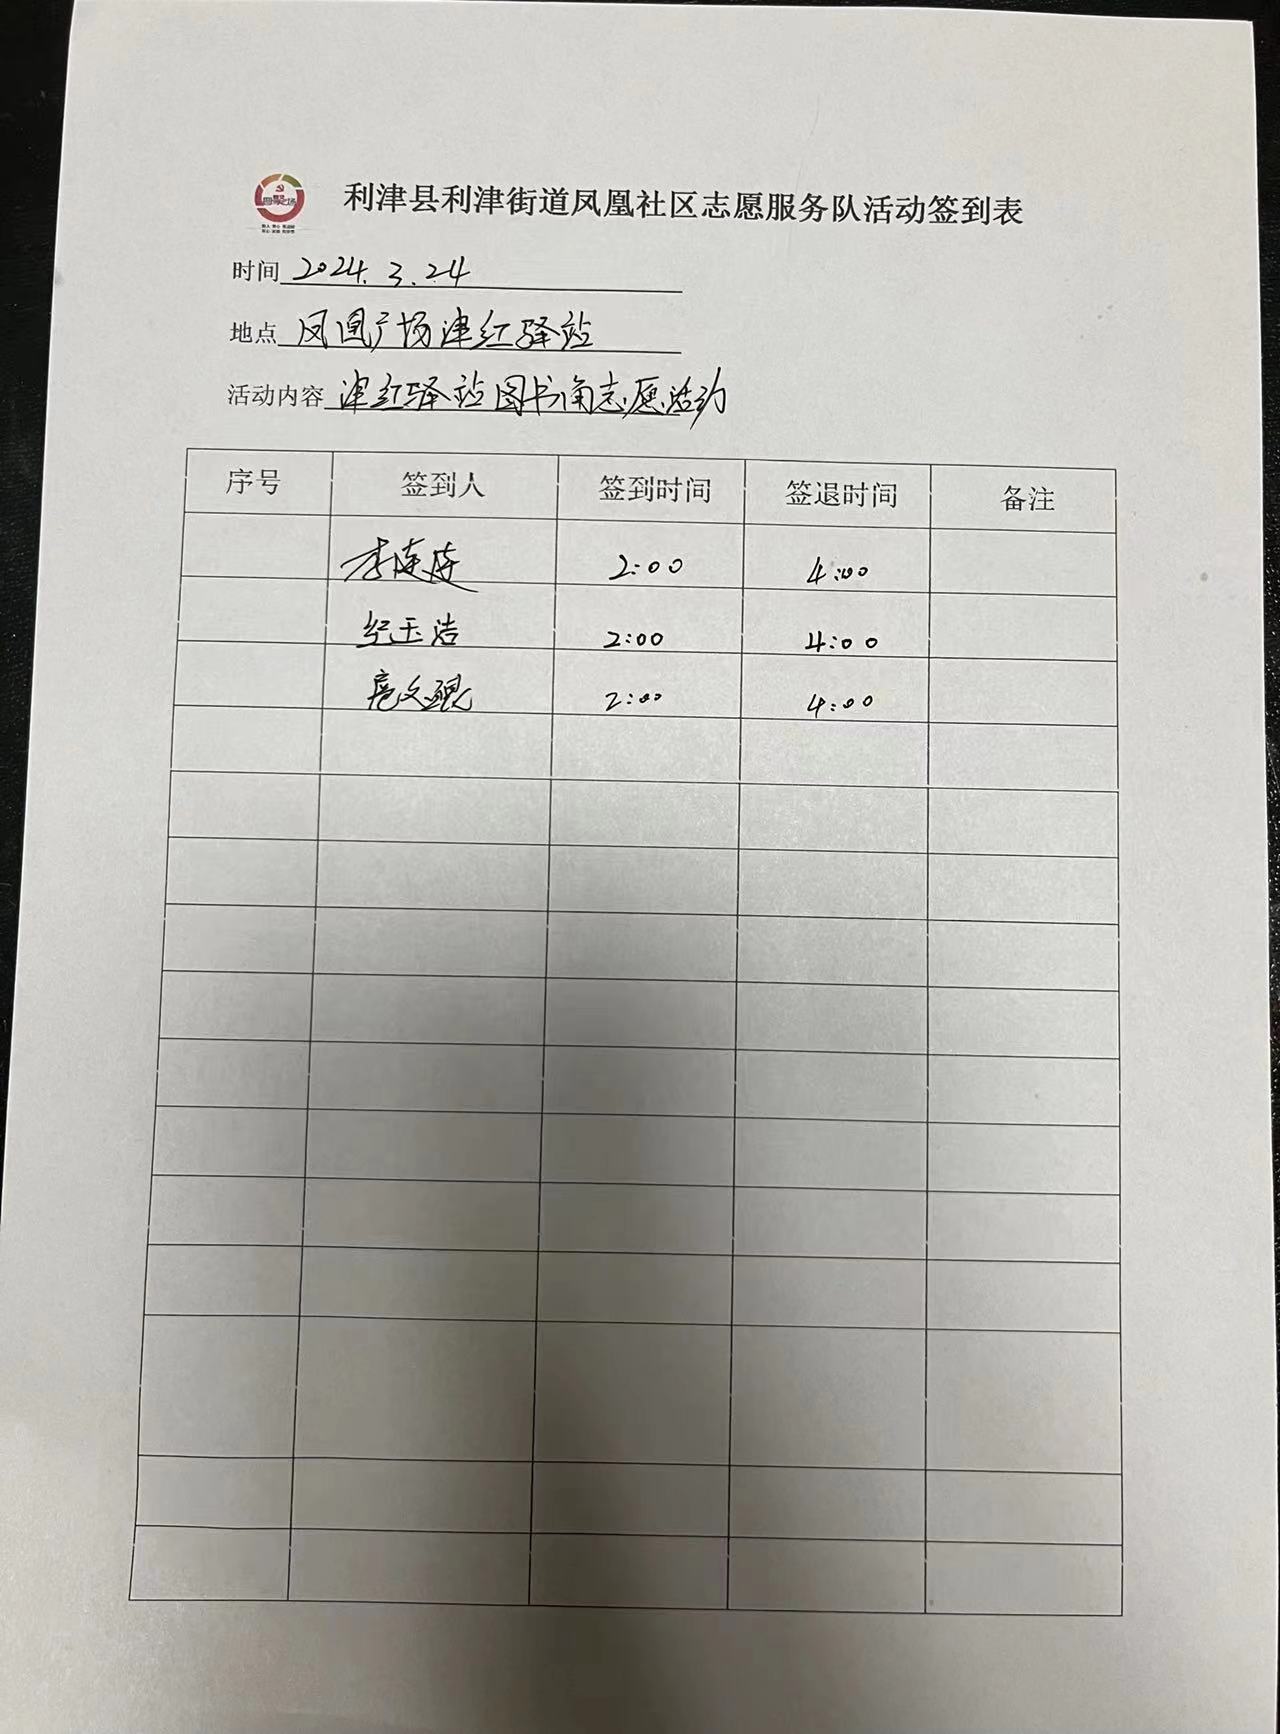 利津县利津街道凤凰社区志愿服务队活动签到表
时间 2024.3.24
地点 凤凰广场津红驿站
活动内容 津红驿站图书角志愿活动
序号 签到人 签到时间 签退时间 备注
李连连 2:00 4:00
纪玉洁 2:00 4:00
2:00 4:00